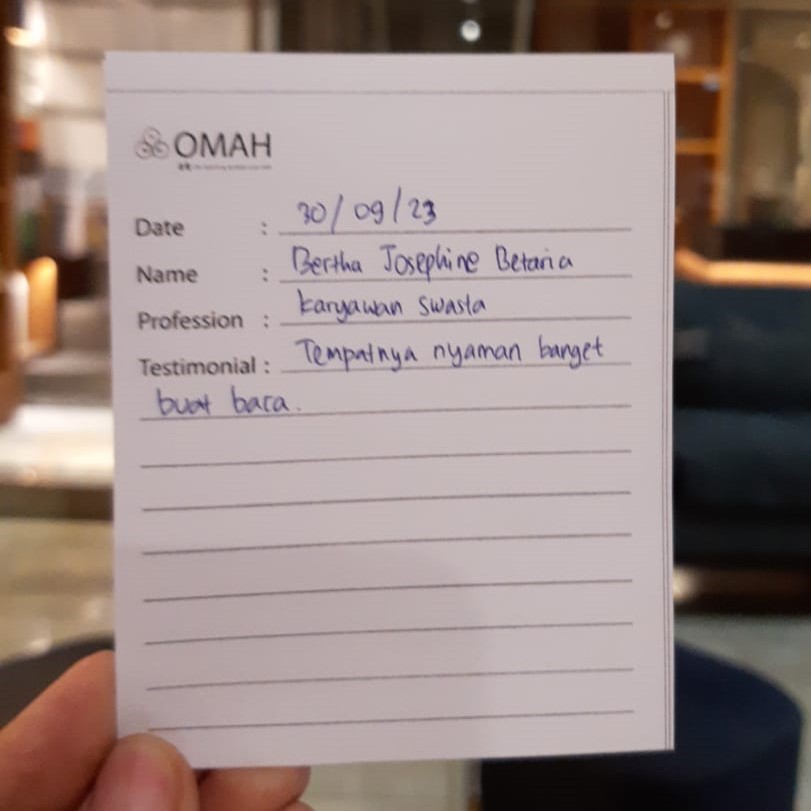 OMAH
Date : 30/09/23
Name : Bertha Josephine Betaria
Profession : karyawan swasta
Testimonial : Tempatnya nyaman banget
buat baca.